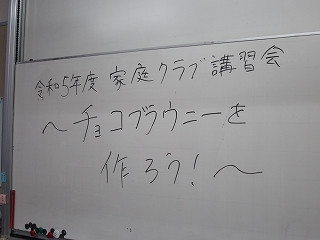 令和5年度 家庭クラブ講習会
～チョコブラウニーを
作ろう!～